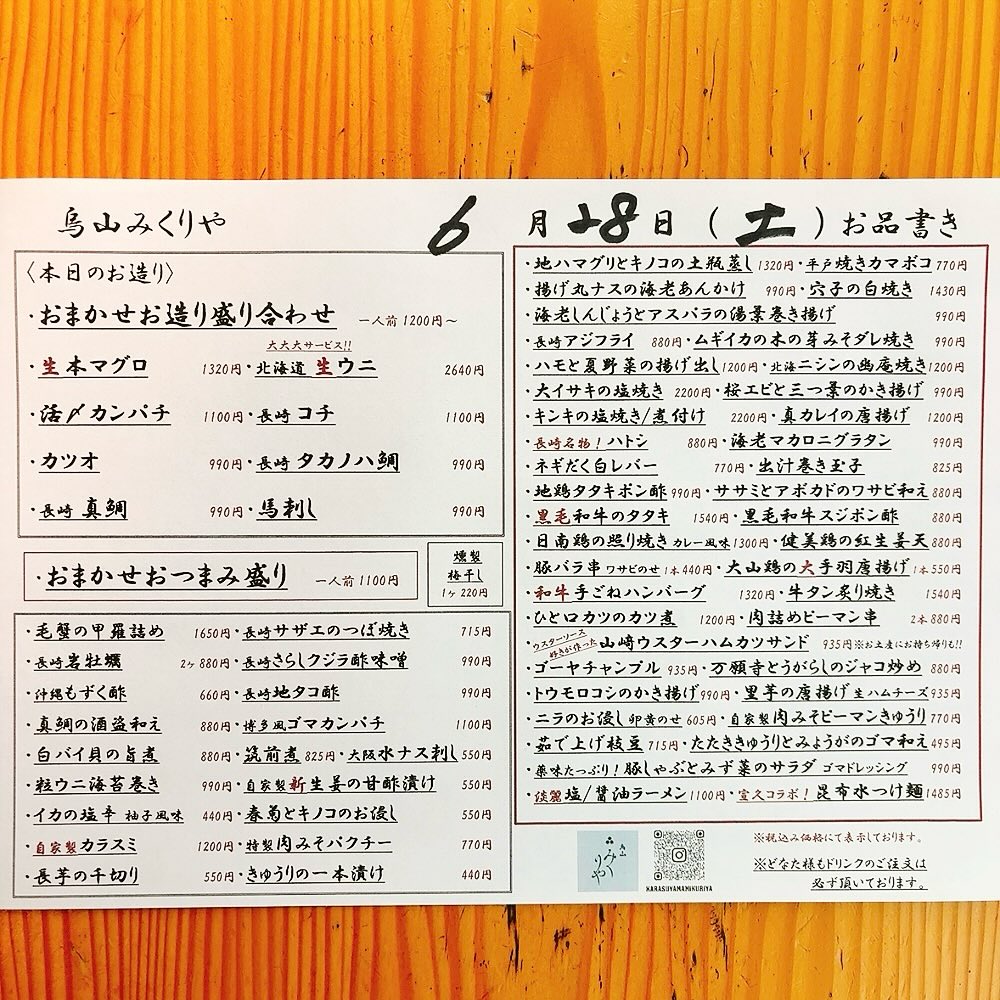 烏山みくりや
6月28日(土)お品書き
〈本日のお造り〉
・おまかせお造り盛り合わせ 一人前1200円〜
大大大サービス!!
・生本マグロ 1320円・北海道 生ウニ 2640円
・活〆カンパチ 1100円・長崎 コチ 1100円
・カツオ 990円・長崎 タカノハ鯛 990円
・長崎 真鯛 990円・馬刺し 990円
・おまかせおつまみ盛り 一人前1100円
燻製
梅干し
1ヶ220円
・毛蟹の甲羅詰め 1650円・長崎サザエのつぼ焼き 715円
・長崎岩牡蠣 2ヶ880円・長崎さらしクジラ酢味噌 990円
・沖縄もずく酢 660円・長崎地タコ酢 990円
・真鯛の酒盗和え 880円・博多風ゴマカンパチ 1100円
・白バイ貝の旨煮 880円・筑前煮 825円・大阪水ナス刺し 550円
・粒ウニ海苔巻き 990円・自家製新生姜の甘酢漬け 550円
・イカの塩辛 柚子風味 440円・春菊とキノコのお浸し 550円
・自家製カラスミ 1200円・特製肉みそパクチー 770円
・長芋の千切り 550円・きゅうりの一本漬け 440円
・地ハマグリとキノコの土瓶蒸し 1320円・平戸焼きカマボコ 770円
・揚げ丸ナスの海老あんかけ 990円・穴子の白焼き 1430円
・海老しんじょうとアスパラの湯葉巻き揚げ 990円
・長崎アジフライ 880円・ムギイカの木の芽みそダレ焼き 990円
・ハモと夏野菜の揚げ出し 1200円・北海ニシンの幽庵焼き 1200円
・大イサキの塩焼き 2200円・桜エビと三つ葉のかき揚げ 990円
・キンキの塩焼き/煮付け 2200円・真カレイの唐揚げ 1200円
・長崎名物!ハトシ 880円・海老マカロニグラタン 990円
・ネギだく白レバー 770円・出汁巻き玉子 825円
・地鶏タタキポン酢 990円・ササミとアボカドのワサビ和え 880円
・黒毛和牛のタタキ 1540円・黒毛和牛スジポン酢 880円
・日南鶏の照り焼き カレー風味 1300円・健美鶏の紅生姜天 880円
・豚バラ串 ワサビのせ 1本440円・大山鶏の大手羽唐揚げ 1本550円
・和牛手ごねハンバーグ 1320円・牛タン炙り焼き 1540円
・ひと口カツのカツ煮 1200円・肉詰めピーマン串 2本880円
・ウスターソース好きが作った 山﨑ウスターハムカツサンド 935円※お土産にお持ち帰りも!!
・ゴーヤチャンプル 935円・万願寺とうがらしのジャコ炒め 880円
・トウモロコシのかき揚げ 990円・里芋の唐揚げ 生ハムチーズ 935円
・ニラのお浸し 卵黄のせ 605円・自家製肉みそピーマンきゅうり 770円
・茹で上げ枝豆 715円・たたききゅうりとみょうがのゴマ和え 495円
・薬味たっぷり!豚しゃぶとみず菜のサラダ ゴマドレッシング 990円
・淡麗塩/醤油ラーメン 1100円・宣久コラボ!昆布水つけ麺 1485円
烏山みくりや
KARASUYAMAMIKURIYA
※税込み価格にて表示しております。
※どなた様もドリンクのご注文は
必ず頂いております。